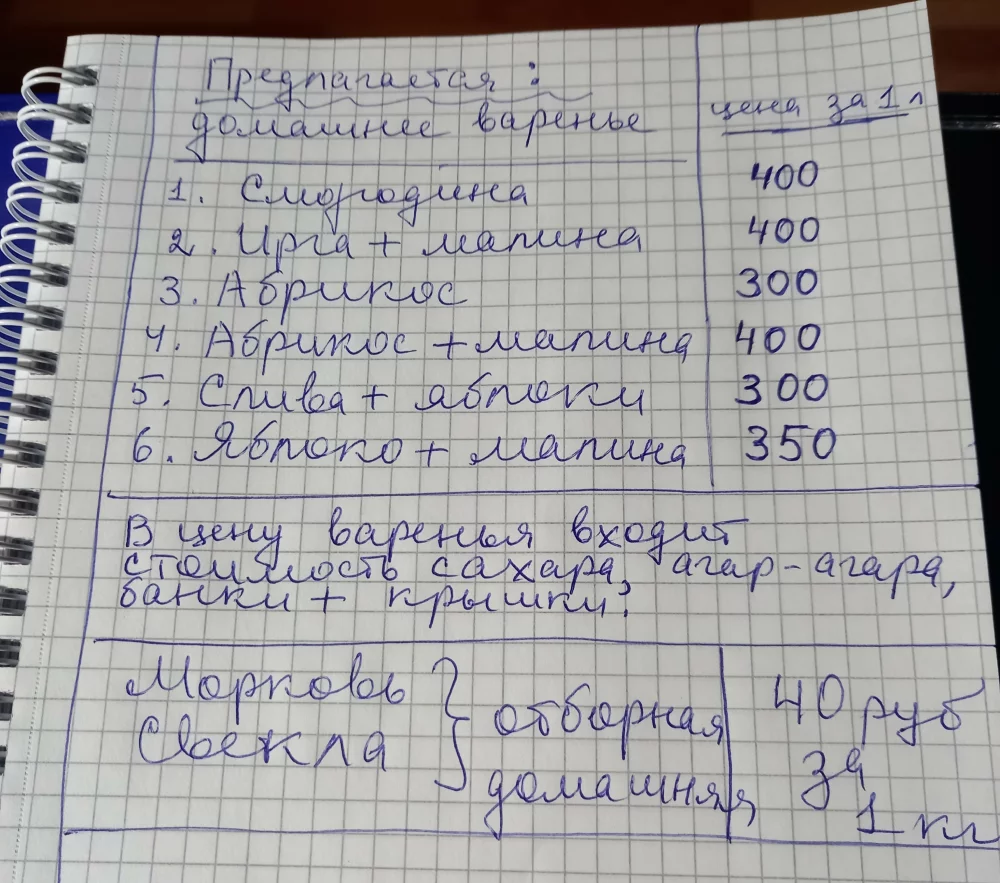 Предлагается:
домашнее варенье
цена за 1 л
1. Смородина 400
2. Ирга + малина 400
3. Абрикос 300
4. Абрикос + малина 400
5. Слива + яблоки 300
6. Яблоко + малина 350
В цену варенья входит
стоимость сахара, агар-агара,
банки + крышки!
Морковь } отборная 40 руб
Свекла } домашняя за
1 кг